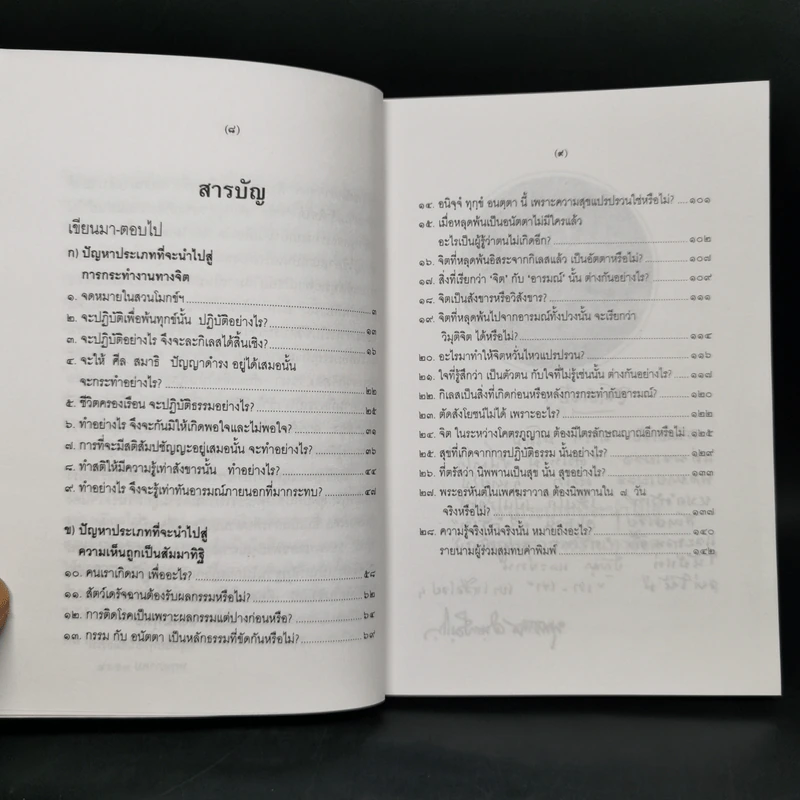 (๘)
สารบัญ
เขียนมา-ตอบไป
ก) ปัญหาประเภทที่จะนำไปสู่
การกระทำงานทางจิต
๑. จดหมายในสวนโมกข์ฯ ๑
๒. จะปฏิบัติเพื่อพ้นทุกข์นั้น ปฏิบัติอย่างไร? ๑๓
๓. จะปฏิบัติอย่างไร จึงจะละกิเลสได้สิ้นเชิง? ๑๖
๔. จะให้ ศีล สมาธิ ปัญญาดำรง อยู่ได้เสมอนั้น
จะกระทำอย่างไร? ๒๒
๕. ชีวิตครองเรือน จะปฏิบัติธรรมอย่างไร? ๒๕
๖. ทำอย่างไร จึงจะกันมิให้เกิดพอใจและไม่พอใจ? ๓๑
๗. การที่จะมีสติสัมปชัญญะอยู่เสมอนั้น จะทำอย่างไร? ๓๖
๘. ทำสติให้มีความรู้เท่าสังขารนั้น ทำอย่างไร? ๔๔
๙. ทำอย่างไร จึงจะรู้เท่าทันอารมณ์ภายนอกที่มากระทบ? ๔๗
ข) ปัญหาประเภทที่จะนำไปสู่
ความเห็นถูกเป็นสัมมาทิฐิ
๑๐. คนเราเกิดมา เพื่ออะไร? ๕๘
๑๑. สัตว์เดรัจฉานต้องรับผลกรรมหรือไม่? ๖๒
๑๒. การติดโรคเป็นเพราะผลกรรมแต่ปางก่อนหรือ? ๖๔
๑๓. กรรม กับ อนัตตา เป็นหลักธรรมที่ขัดกันหรือไม่? ๖๙
(๙)
๑๔. อนิจฺจํ ทุกฺขํ อนตฺตา นี้ เพราะความสุขแปรปรวนใช่หรือไม่? ๑๐๑
๑๕. เมื่อหลุดพ้นเป็นอนัตตาไม่มีใครแล้ว
อะไรเป็นผู้รู้ว่าตนไม่เกิดอีก? ๑๐๒
๑๖. จิตที่หลุดพ้นอิสระจากกิเลสแล้ว เป็นอัตตาหรือไม่? ๑๐๗
๑๗. สิ่งที่เรียกว่า 'จิต' กับ 'อารมณ์' นั้น ต่างกันอย่างไร? ๑๐๙
๑๘. จิตเป็นสังขารหรือวิสังขาร? ๑๑๑
๑๙. จิตที่หลุดพ้นไปจากอารมณ์ทั้งปวงนั้น จะเรียกว่า
วิมุติจิต ได้หรือไม่? ๑๑๔
๒๐. อะไรมาทำให้จิตหวั่นไหวแปรปรวน? ๑๑๖
๒๑. ใจที่รู้สึกว่า เป็นตัวตน กับใจที่ไม่รู้เช่นนั้น ต่างกันอย่างไร? ๑๑๗
๒๒. กิเลสเป็นสิ่งที่เกิดก่อนหรือหลังการกระทำกับอารมณ์? ๑๒๐
๒๓. ตัดสังโยชน์ไม่ได้ เพราะอะไร? ๑๒๒
๒๔. จิต ในระหว่างโคตรภูญาณ ต้องมีไตรลักษณญาณอีกหรือไม่ ๑๒๕
๒๕. สุขที่เกิดจากการปฏิบัติธรรม นั้นอย่างไร? ๑๒๙
๒๖. ที่ตรัสว่า นิพพานเป็นสุข นั้น สุขอย่างไร? ๑๓๓
๒๗. พระอรหันต์ในเพศฆราวาส ต้องนิพพานใน ๗ วัน
จริงหรือไม่? ๑๓๗
๒๘. ความรู้จริงเห็นจริงนั้น หมายถึงอะไร? ๑๔๐
รายนามผู้ร่วมสมทบค่าพิมพ์ ๑๔๒